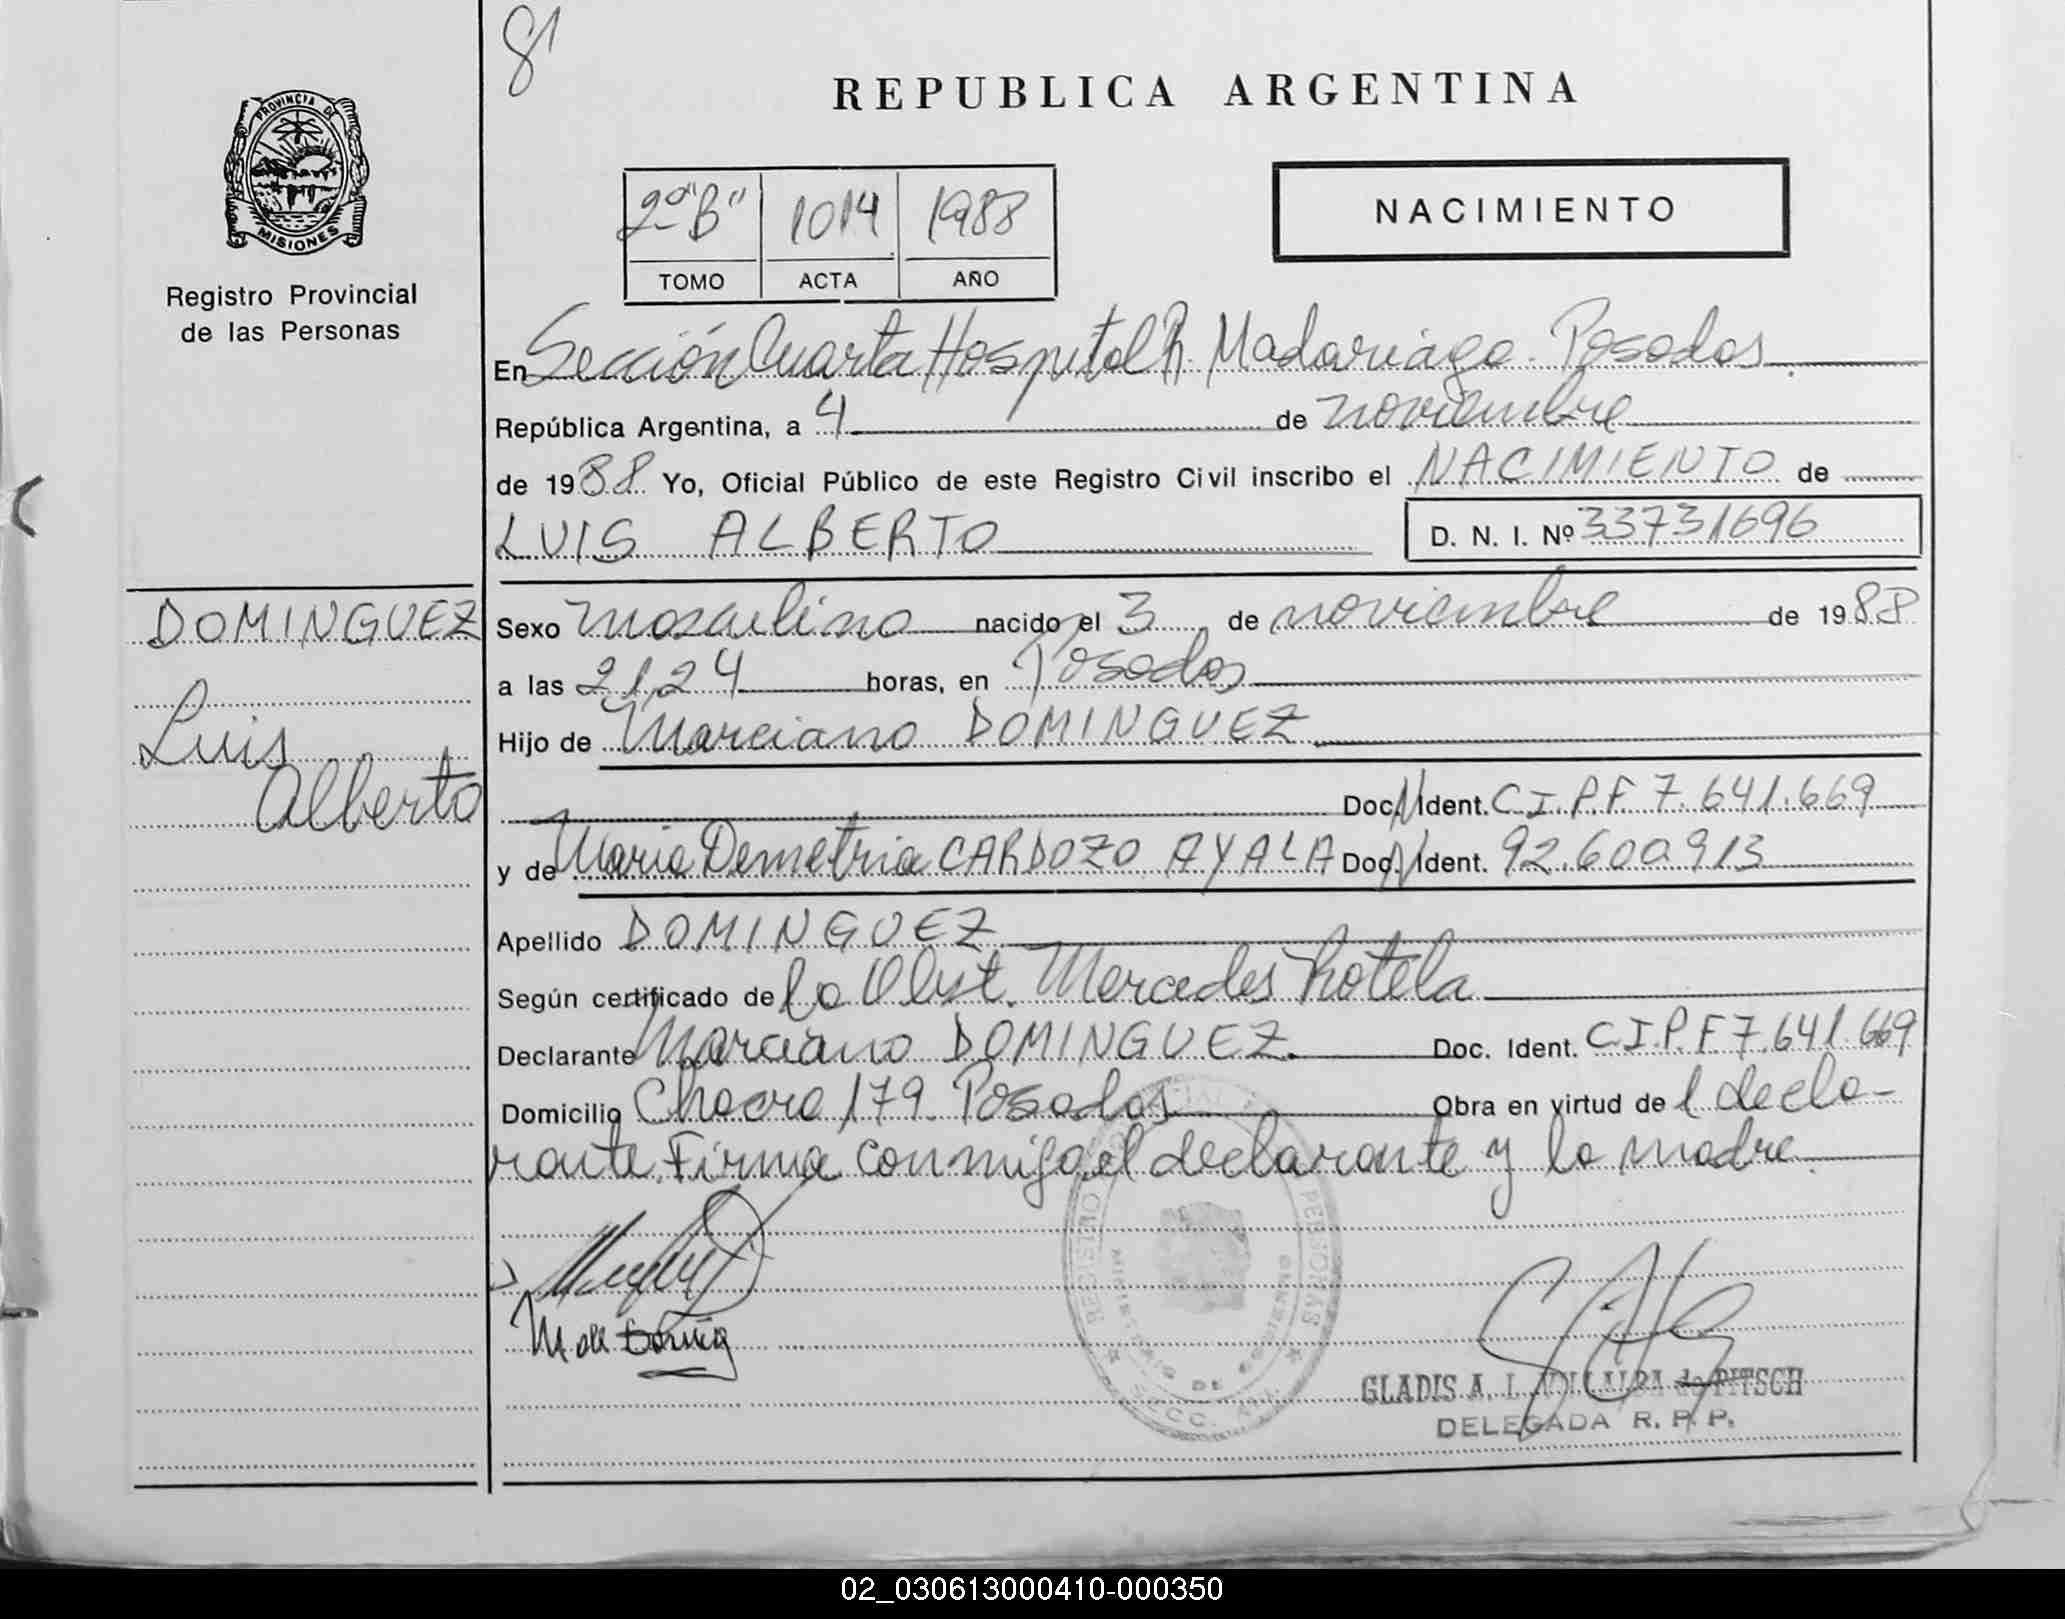 81
REPUBLICA ARGENTINA
PROVINCIA DE
MISIONES
Registro Provincial
de las Personas
2º "B" 1014 1988
TOMO ACTA AÑO
NACIMIENTO
En Sección Cuarta Hospital R. Madariaga. Posadas
República Argentina, a 4 de noviembre
de 1988 Yo, Oficial Público de este Registro Civil inscribo el NACIMIENTO de
LUIS ALBERTO D. N. I. Nº 33731696
DOMINGUEZ
Luis
Alberto
Sexo masculino nacido el 3 de noviembre de 1988
a las 21,24 horas, en Posadas
Hijo de Marciano DOMINGUEZ
Doc. Ident. C.I.P.F 7.641.669
y de Maria Demetria CARDOZO AYALA Doc. Ident. 92.600.913
Apellido DOMINGUEZ
Según certificado de la Obst. Mercedes Rotela
Declarante Marciano DOMINGUEZ. Doc. Ident. C.I.P.F 7.641.669
Domicilio Chacra 179 Posadas Obra en virtud de l decla-
rante. Firma conmigo el declarante y la madre.
REGISTRO PERSONAS
MINISTERIO DE GOBIERNO
GLADIS A. I. VILLALBA de PITSCH
DELEGADA R. P. P.
02_030613000410-000350